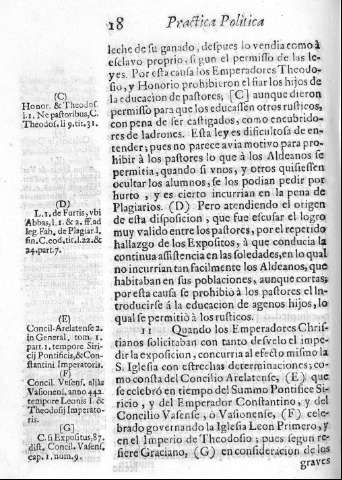 18 Practica Politica
leche de su ganado, despues lo vendia como à
esclavo proprio, si gun el permisso de las le-
yes. Por esta causa los Emperadores Theodo-
sio, y Honorio prohibieron el fiar los hijos de
la educacion de pastores, [C] aunque dieron
permisso para que los educassen otros rusticos,
con pena de ser castigados, como encubrido-
res de ladrones. Esta ley es dificultosa de en-
tender; pues no parece avia motivo para pro-
hibir à los pastores lo que à los Aldeanos se
permitia, quando si vnos, y otros quisiessen
ocultar los alumnos, se los podian pedir por
hurto, y es cierto incurrian en la pena de
Plagiarios. (D) Pero atendiendo el origen
de esta disposicion, que fue escusar el logro
muy valido entre los pastores, por el repetido
hallazgo de los Expositos, à que conducia la
continua assistencia en las soledades, en lo qual
no incurrian tan facilmente los Aldeanos, que
habitaban en sus poblaciones, aunque cortas,
por esta causa se prohibiò à los pastores el In-
troducirse à la educacion de agenos hijos, lo
qual se permitiò à los rusticos.
11 Quando los Emperadores Chris-
tianos solicitaban con tanto desvelo el impe-
dir la exposicion, concurria al efecto mismo la
S. Iglesia con estrechas determinaciones; co-
mo consta del Concilio Arelatense, (E) que
se celebrò en tiempo del Summo Pontifice Si-
ricio, y del Emperador Constantino, y del
Concilio Vasense, ò Vasionense, (F) cele-
brado governando la Iglesia Leon Primero, y
en el Imperio de Theodosio; pues segun re-
fiere Graciano, (G) en consideracion de los
graves
(C)
Honor. & Theodos.
l. 1. Ne pastoribus, C.
Theodos. li 9. tit. 31.
(D)
L. 1. de Furtis, vbi
Abbas, l. 1. & 2. ff. ad
leg. Fab. de Plagiar. l.
fin. C. eod. tit. l. 22. &
24. part. 7.
(E)
Concil. Arelatense 2.
in General, tom. 1.
part. 1. tempore Siri-
cij Pontificis, & Con-
stantini Imperatoris.
(F)
Concil. Vasens. aliàs
Vasionens. anno 442.
tempore Leonis I. &
Theodosij Imperato-
ris.
(G)
C. si Expositus, 87.
dist. Concil. Vasens.
cap. 1. num. 9.